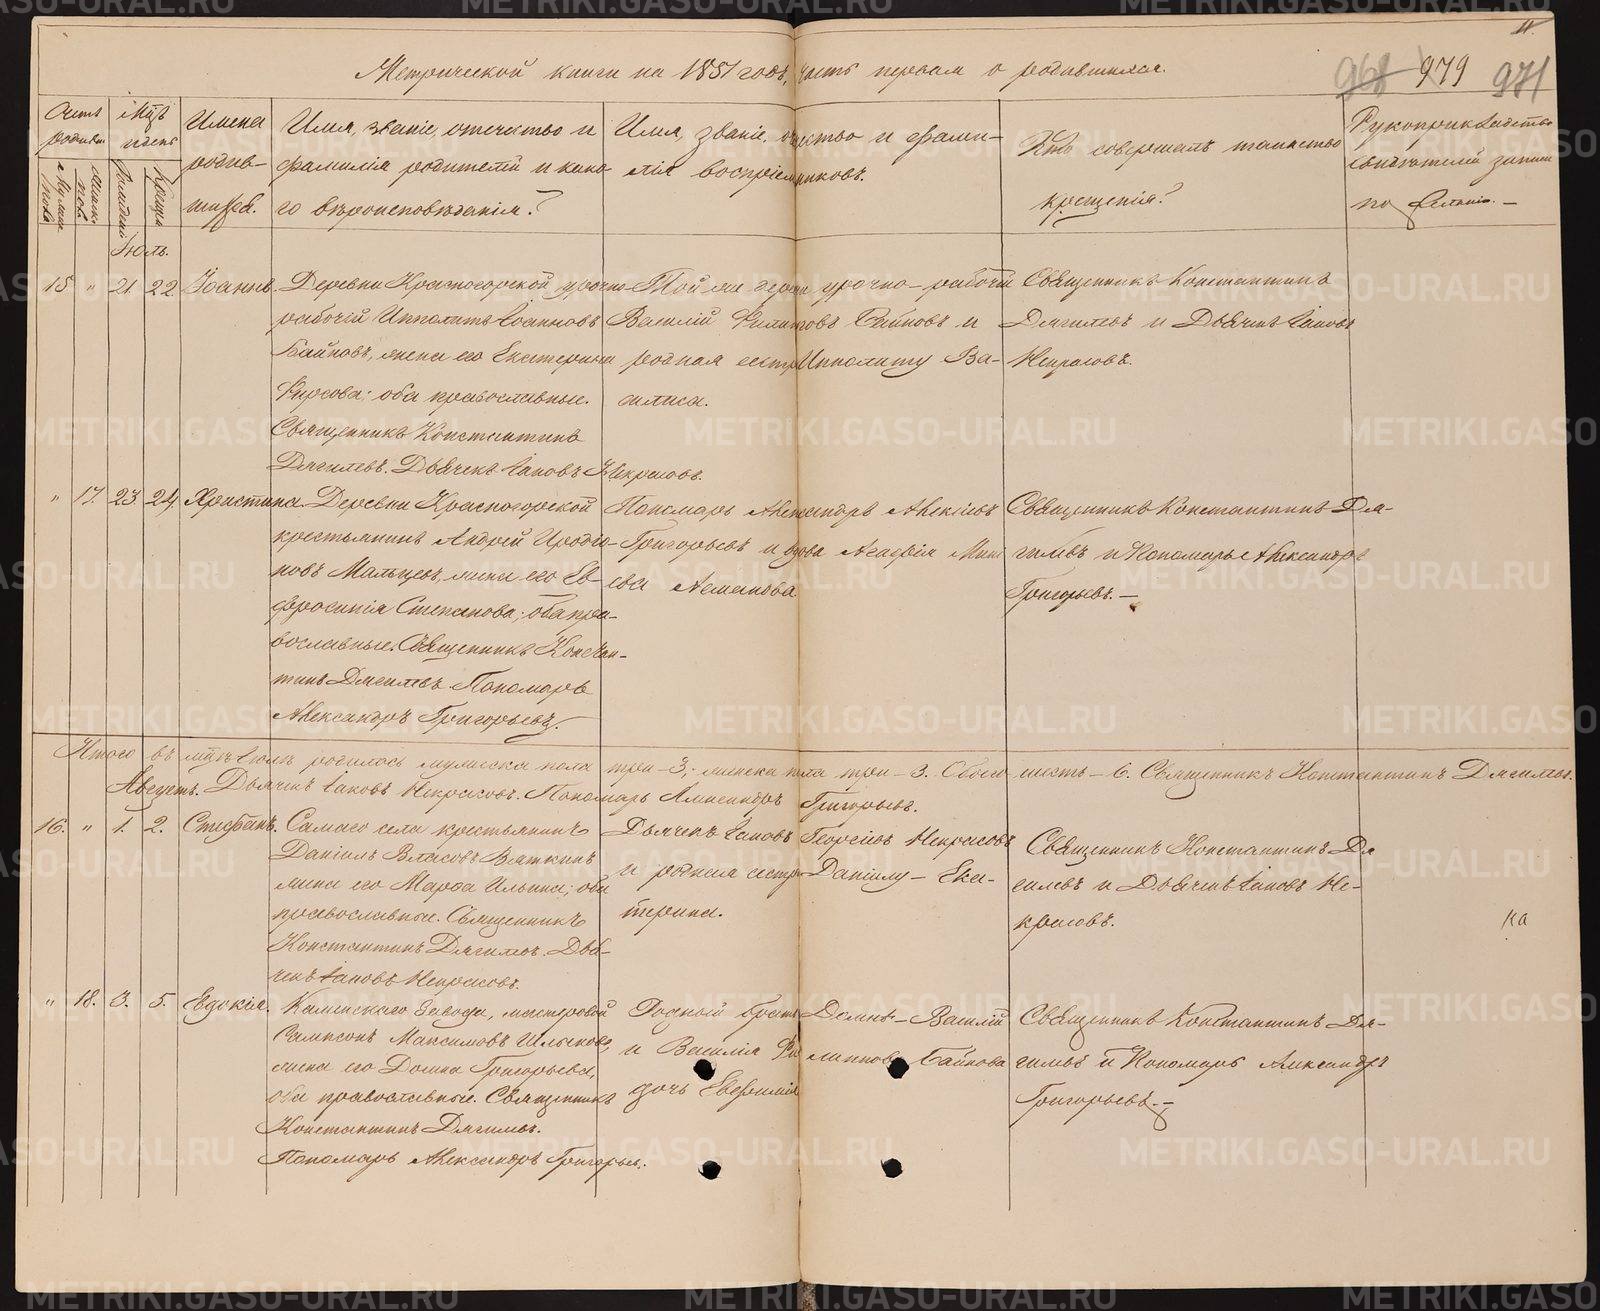 Метрической книги на 1851 годъ, часть первая о родившихся.
968 979 971
Счетъ родивш.
Мужеска пола
Женск. пола
Мѣсяцъ и день
Рожденія
Крещен.
Имена родив-
шихся.
Имя, званіе, отечество и
фамилія родителей и како-
го вѣроисповѣданія?
Имя, званіе, отчество и фами-
лія воспріемниковъ.
Кто совершалъ таинство
крещенія?
Рукоприкладство
свидѣтелей записи
по желанію. —
Іюль.
15 " 21. 22. Іоаннъ.
Деревни Красногорской урочно-
рабочій Ипполитъ Іоанновъ
Байновъ, жена его Екатерина
Фирсова; оба православные.
Священникъ Константинъ
Дягилевъ. Дьячекъ Іаковъ Некрасовъ.
Той же дерев. урочно-рабочій
Василій Филиповъ Байновъ и
родная сестра Ипполиту Ва-
силиса.
Священникъ Константинъ
Дягилевъ и Дьячекъ Іаковъ
Некрасовъ.
" 17. 23. 24. Христина.
Деревни Красногорской
крестьянинъ Андрей Иродіо-
новъ Мальцевъ, жена его Ев-
фросинія Степанова; оба пра-
вославные. Священникъ Констан-
тинъ Дягилевъ Пономарь
Александръ Григорьевъ.
Пономарь Александръ Алексіевъ
Григорьевъ и вдова Агафія
Священникъ Константинъ Дя-
гилевъ и Пономарь Александръ
Григорьевъ. —
Итого въ мѣсяцѣ Іюлѣ родилось мужеска пола три — 3; женска пола три — 3. Обоего шесть — 6. Священникъ Константинъ Дягилевъ.
Дьячекъ Іаковъ Некрасовъ. Пономарь Александръ Григорьевъ.
Августъ.
16. " 1. 2. Стефанъ.
Самаго села крестьянинъ
Даніилъ Власовъ Вяткинъ
жена его Марфа Ильина; оба
православные. Священникъ
Константинъ Дягилевъ. Дья-
чекъ Іаковъ Некрасовъ.
Дьячекъ Іаковъ Георгіевъ Некрасовъ
и родная сестра Даніилу — Ека-
терина.
Священникъ Константинъ Дя-
гилевъ и Дьячекъ Іаковъ Не-
красовъ.
на
" 18. 3. 5. Евдокія.
Каменскаго Завода, мастеровой
Сампсонъ Максимовъ
жена его Домна Григорьева,
оба православные. Священникъ
Константинъ Дягилевъ.
Пономарь Александръ Григорьев.
Родной братъ Домнѣ — Василій
и Василія Филиппова Байнова
дочь Евфимія
Священникъ Константинъ Дя-
гилевъ и Пономарь Александръ
Григорьевъ. —
METRIKI.GASO-URAL.RU